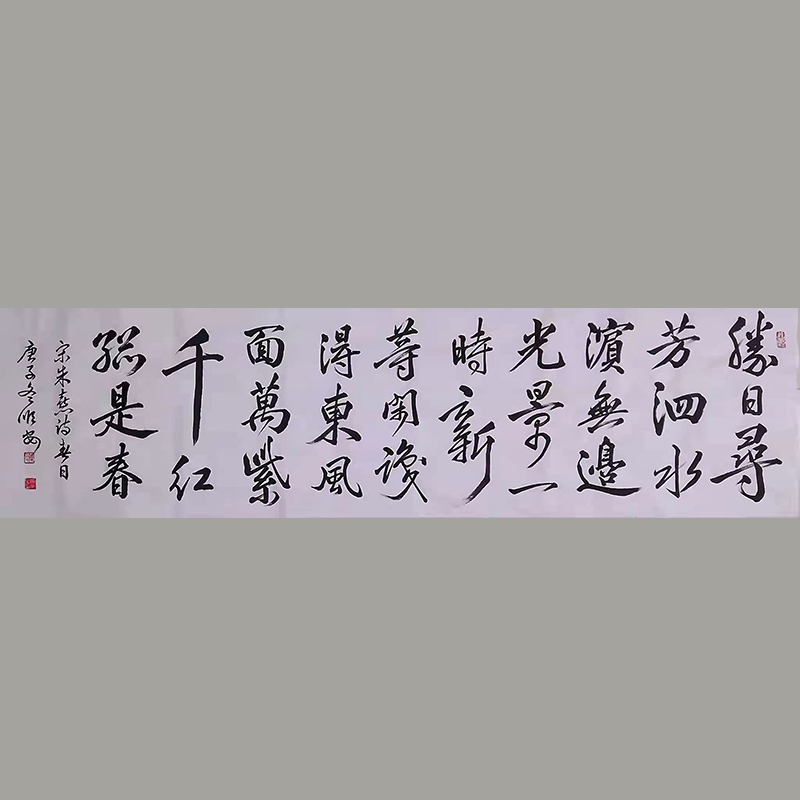 勝日尋
芳泗水
濱無邊
光景一
時新
等閑識
得東風
面萬紫
千红
總是春
宋朱熹詩春日
庚子冬